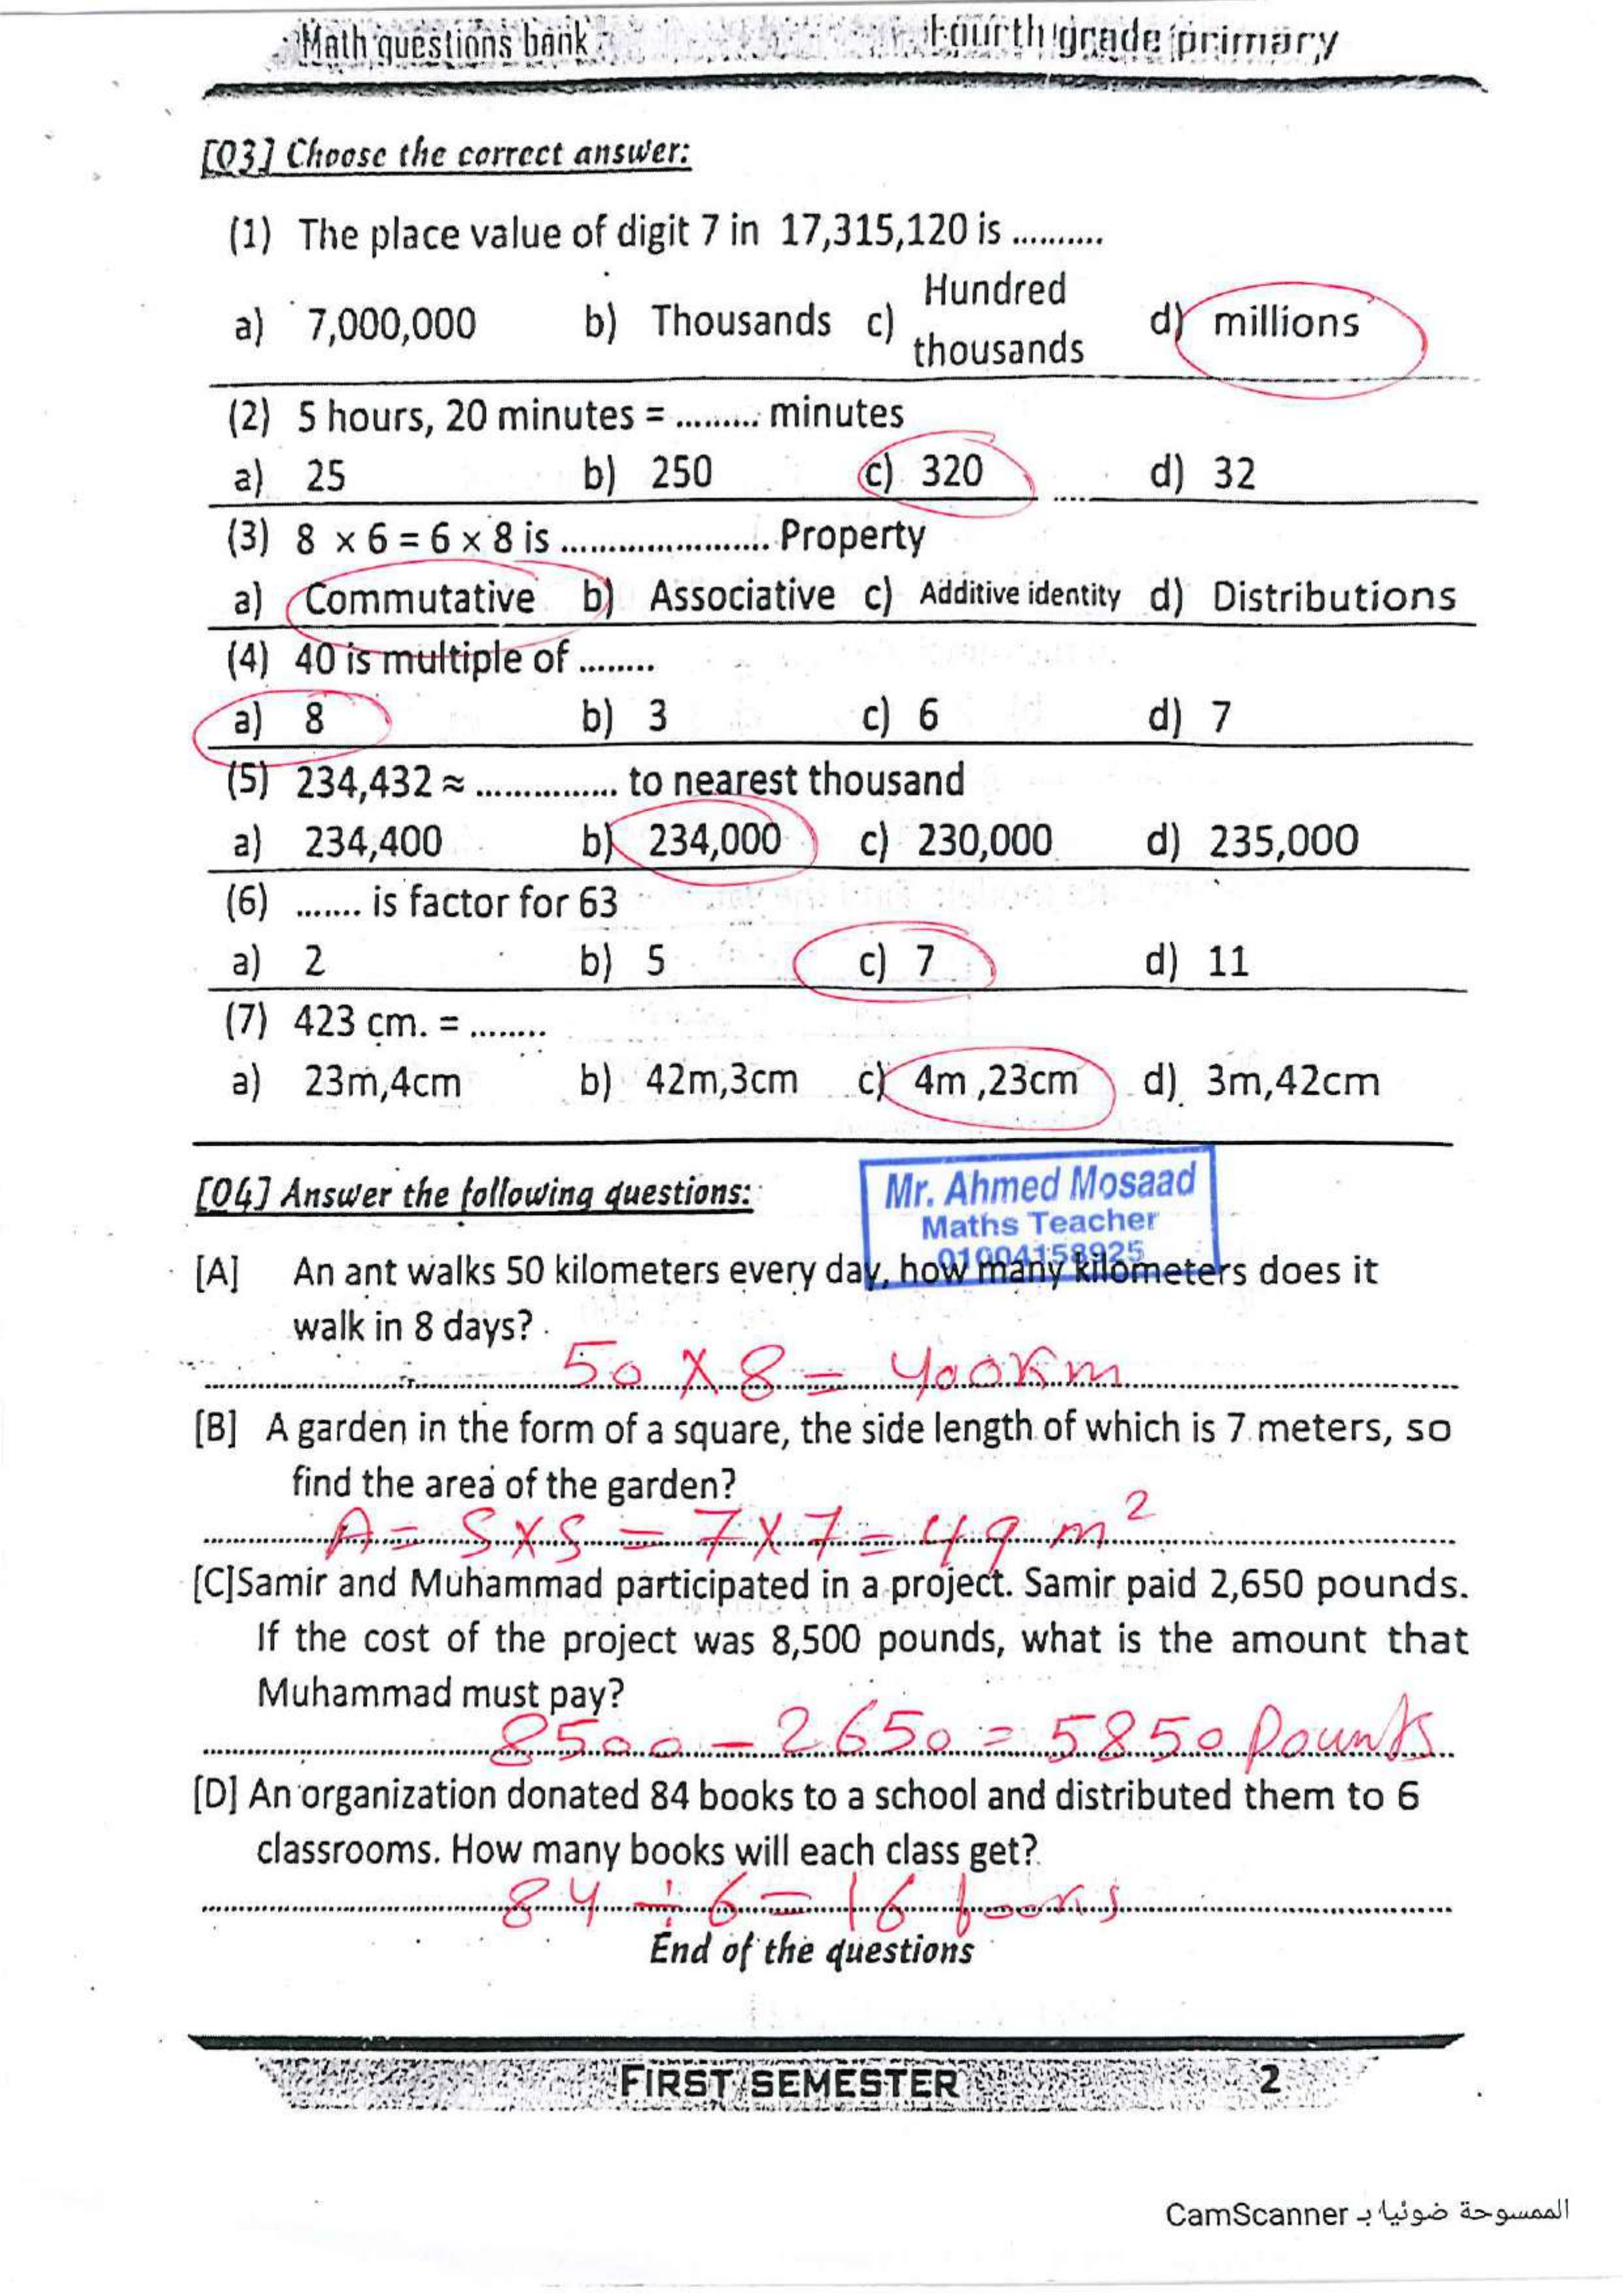 Math questions bank Fourth grade primary
[Q3] Choose the correct answer:
(1) The place value of digit 7 in 17,315,120 is ..........
a) 7,000,000 b) Thousands c) Hundred thousands d) millions
(2) 5 hours, 20 minutes = ......... minutes
a) 25 b) 250 c) 320 d) 32
(3) 8 × 6 = 6 × 8 is ...................... Property
a) Commutative b) Associative c) Additive identity d) Distributions
(4) 40 is multiple of ........
a) 8 b) 3 c) 6 d) 7
(5) 234,432 ≈ ............... to nearest thousand
a) 234,400 b) 234,000 c) 230,000 d) 235,000
(6) ....... is factor for 63
a) 2 b) 5 c) 7 d) 11
(7) 423 cm. = ........
a) 23m,4cm b) 42m,3cm c) 4m ,23cm d) 3m,42cm
[Q4] Answer the following questions:
Mr. Ahmed Mosaad
Maths Teacher
01004158925
[A] An ant walks 50 kilometers every day, how many kilometers does it
walk in 8 days?
50 × 8 = 400 Km
[B] A garden in the form of a square, the side length of which is 7 meters, so
find the area of the garden?
A = S × S = 7 × 7 = 49 m²
[C] Samir and Muhammad participated in a project. Samir paid 2,650 pounds.
If the cost of the project was 8,500 pounds, what is the amount that
Muhammad must pay?
8500 - 2650 = 5850 Pounds
[D] An organization donated 84 books to a school and distributed them to 6
classrooms. How many books will each class get?
84 ÷ 6 = 16 books
End of the questions
FIRST SEMESTER 2
الممسوحة ضوئيا بـ CamScanner